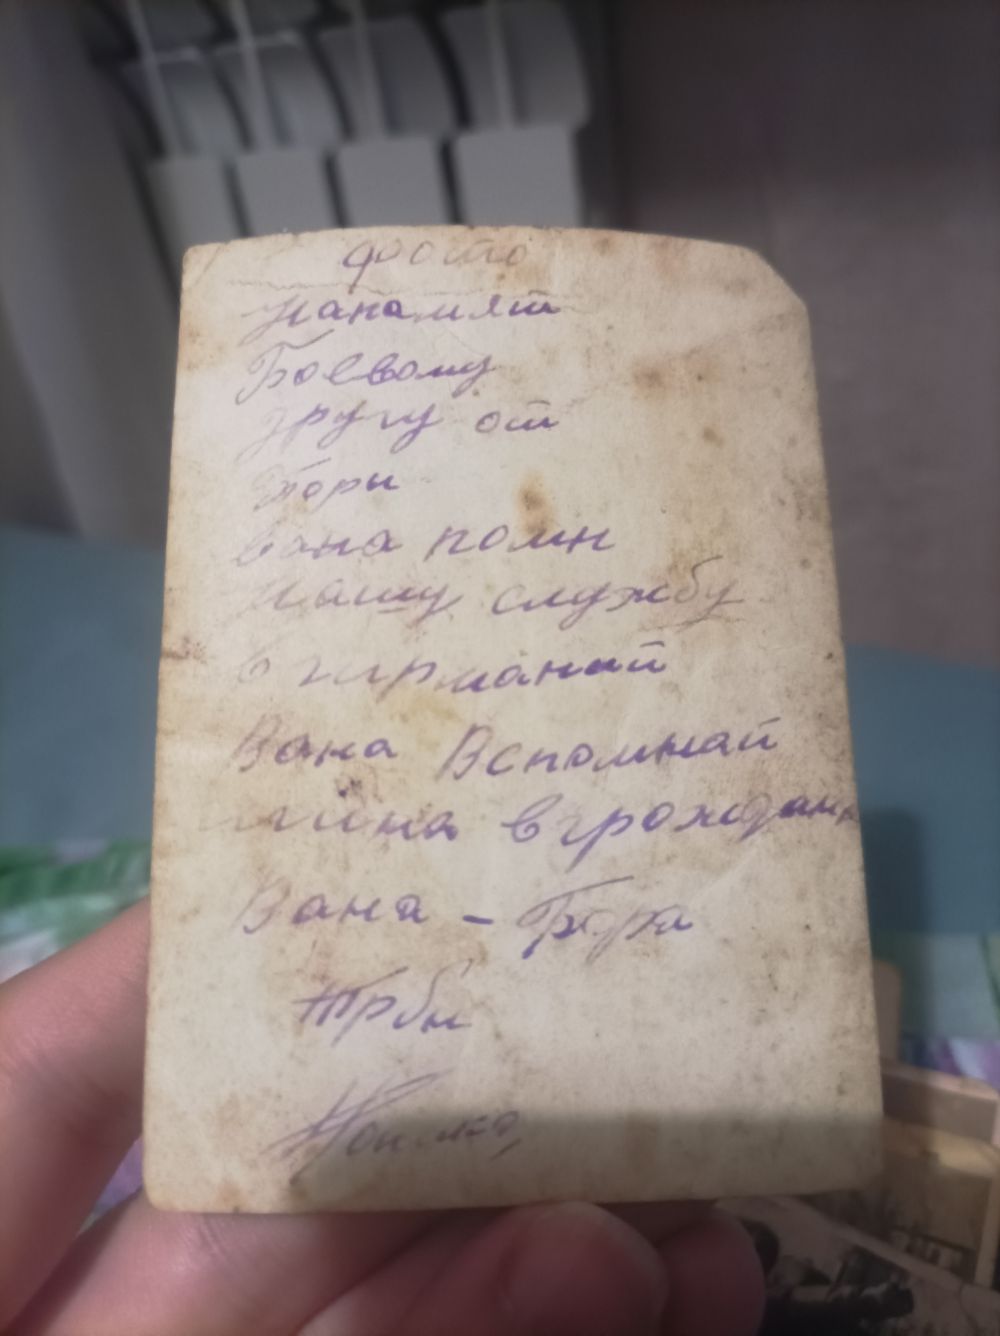 фото
напамят
Боевому
другу от
Бори
Вана помн
нашу службу
в гирманий
Вана Вспомнай
в грождан
Вана – Боря